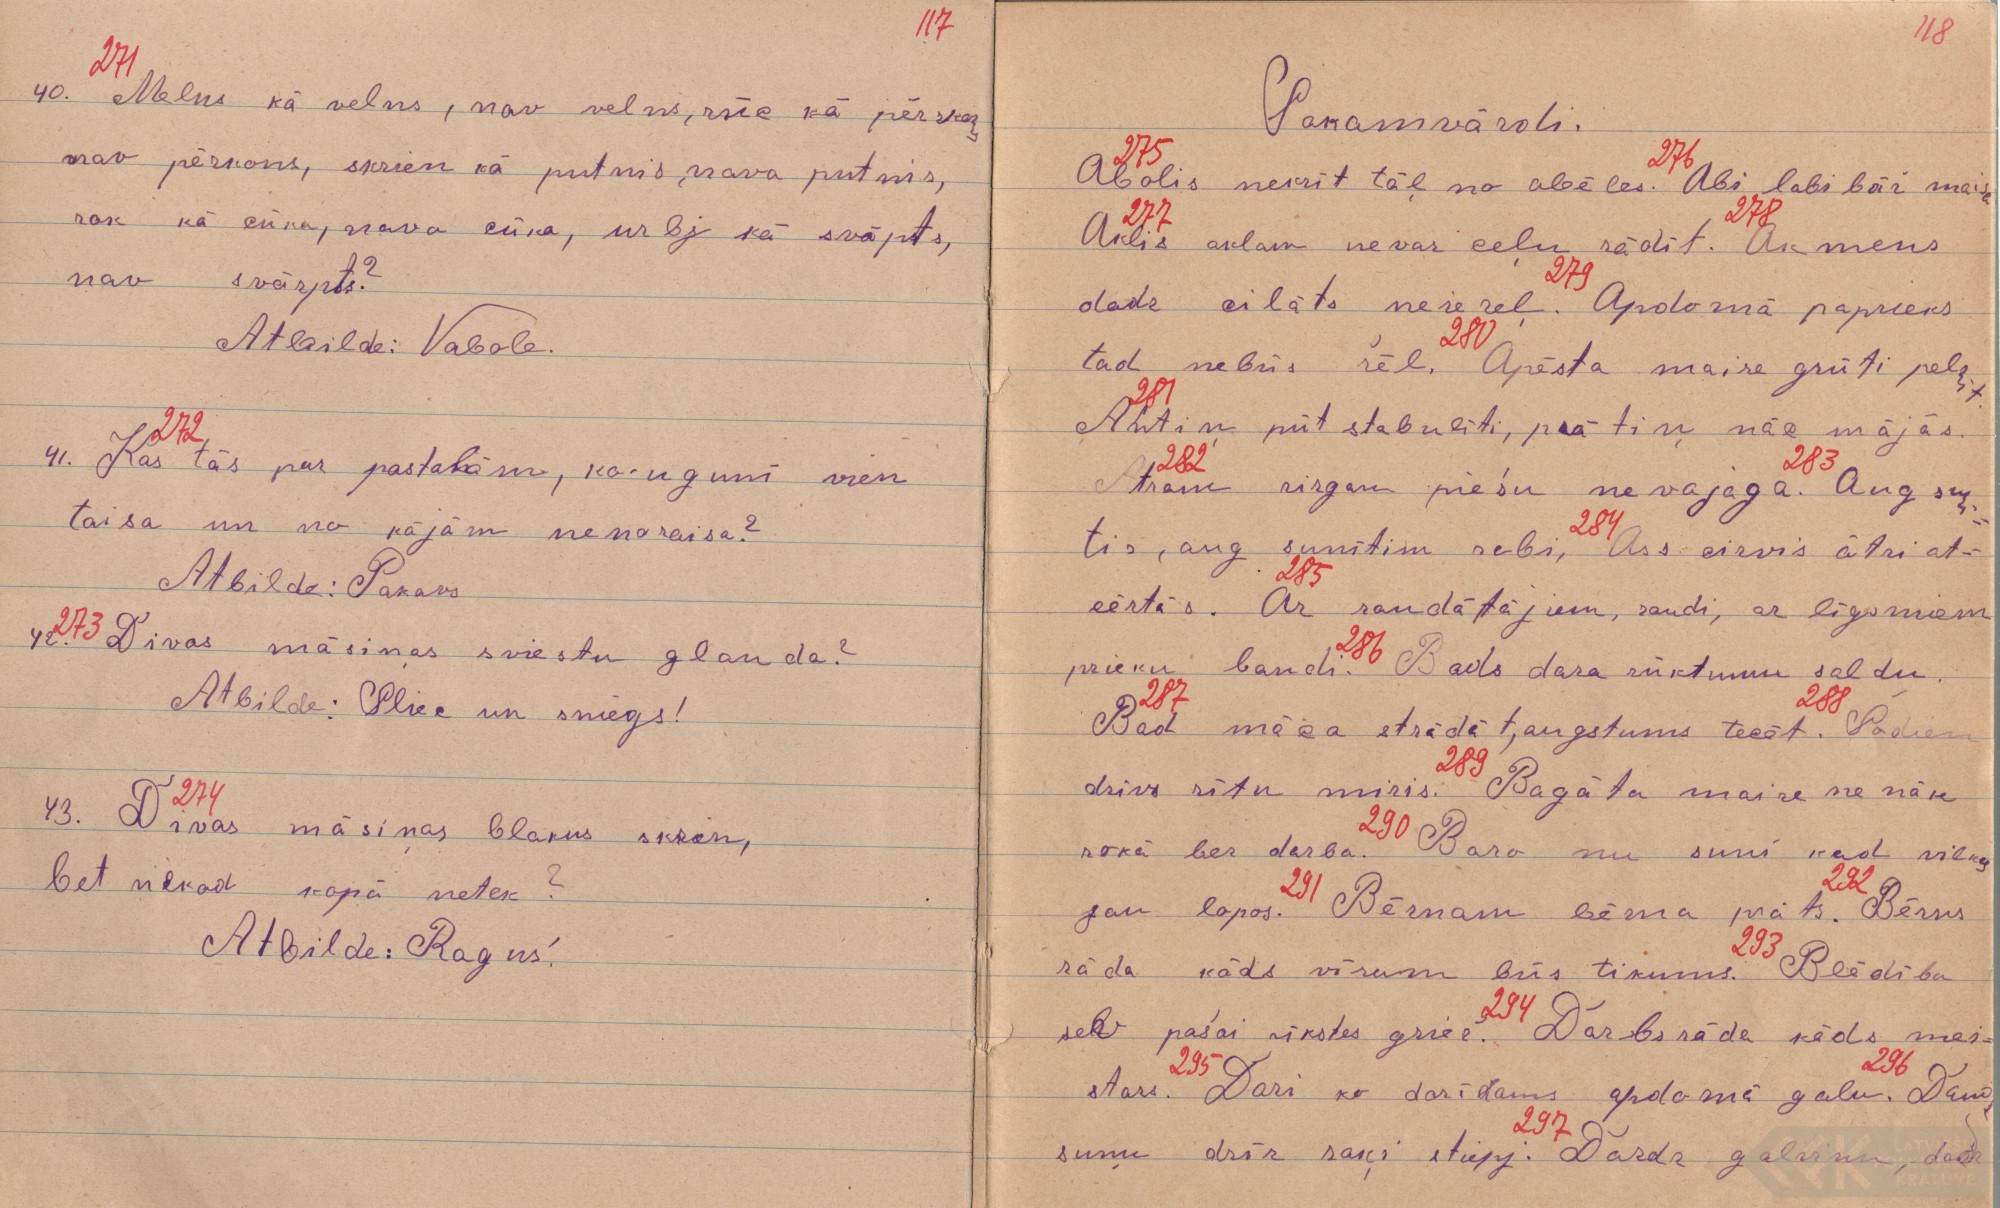 117
271
40. Melns kā velns, nav velns, rūc kā pērkons
nav pērkons, skrien kā putnis, nava putnis,
rok kā cūka, nava cūka, urbj kā svāpts,
nav svārpts?
Atbilde: Vabole.
272
41. Kas tās par pastalām, ko uguni vien
taisa un no kājām nenoraisa?
Atbilde: Pakavs
273
42. Divas māsiņas sviestu glauda?
Atbilde: Sliec un sniegs!
274
43. Divas māsiņas blakus skrien,
bet nekad kopā netek?
Atbilde: Ragus!
118
Sakamvārdi.
275 276
Abolis nekrīt tāļ no abēles. Abi labi bāi maisa
277 278
Aklis aklam nevar ceļu rādīt. Akmens
279
dadz cilāts neiezeļ. Apdomā paprieks
280
tad nebūs žēl. Apēsta maize grūti pelnīt.
281
Antiņ pūt stabulīti, prātiņ nāc mājās.
282 283
Ātram zirgam piešu nevajaga. Aug suņī-
284
tis, aug sunītim zobi, Ass cirvis ātri at-
285
cērtās. Ar raudātājiem, raudi, ar līgsmiem
286
prieku baudi. Bads dara rūktumu saldu.
287 288
Bad māca strādāt, augstums tecēt. Šodien
289
dzīvs rītu miris. Bagāta maize nenāk
290
rokā bez darba. Baro nu suni kad vilks
291 292
jau lopos. Bērnam bērna prāts. Bērns
293
rāda kāds vīram būs tikums. Blēdība
294
sev pašai rīkstes griež. Darbs rāda kāds mei-
295 296
stars. Dari ko darīdams apdomā galu. Daudz
297
suņu drīz zaķi stiepj. Dārdz galviņu, dārdz